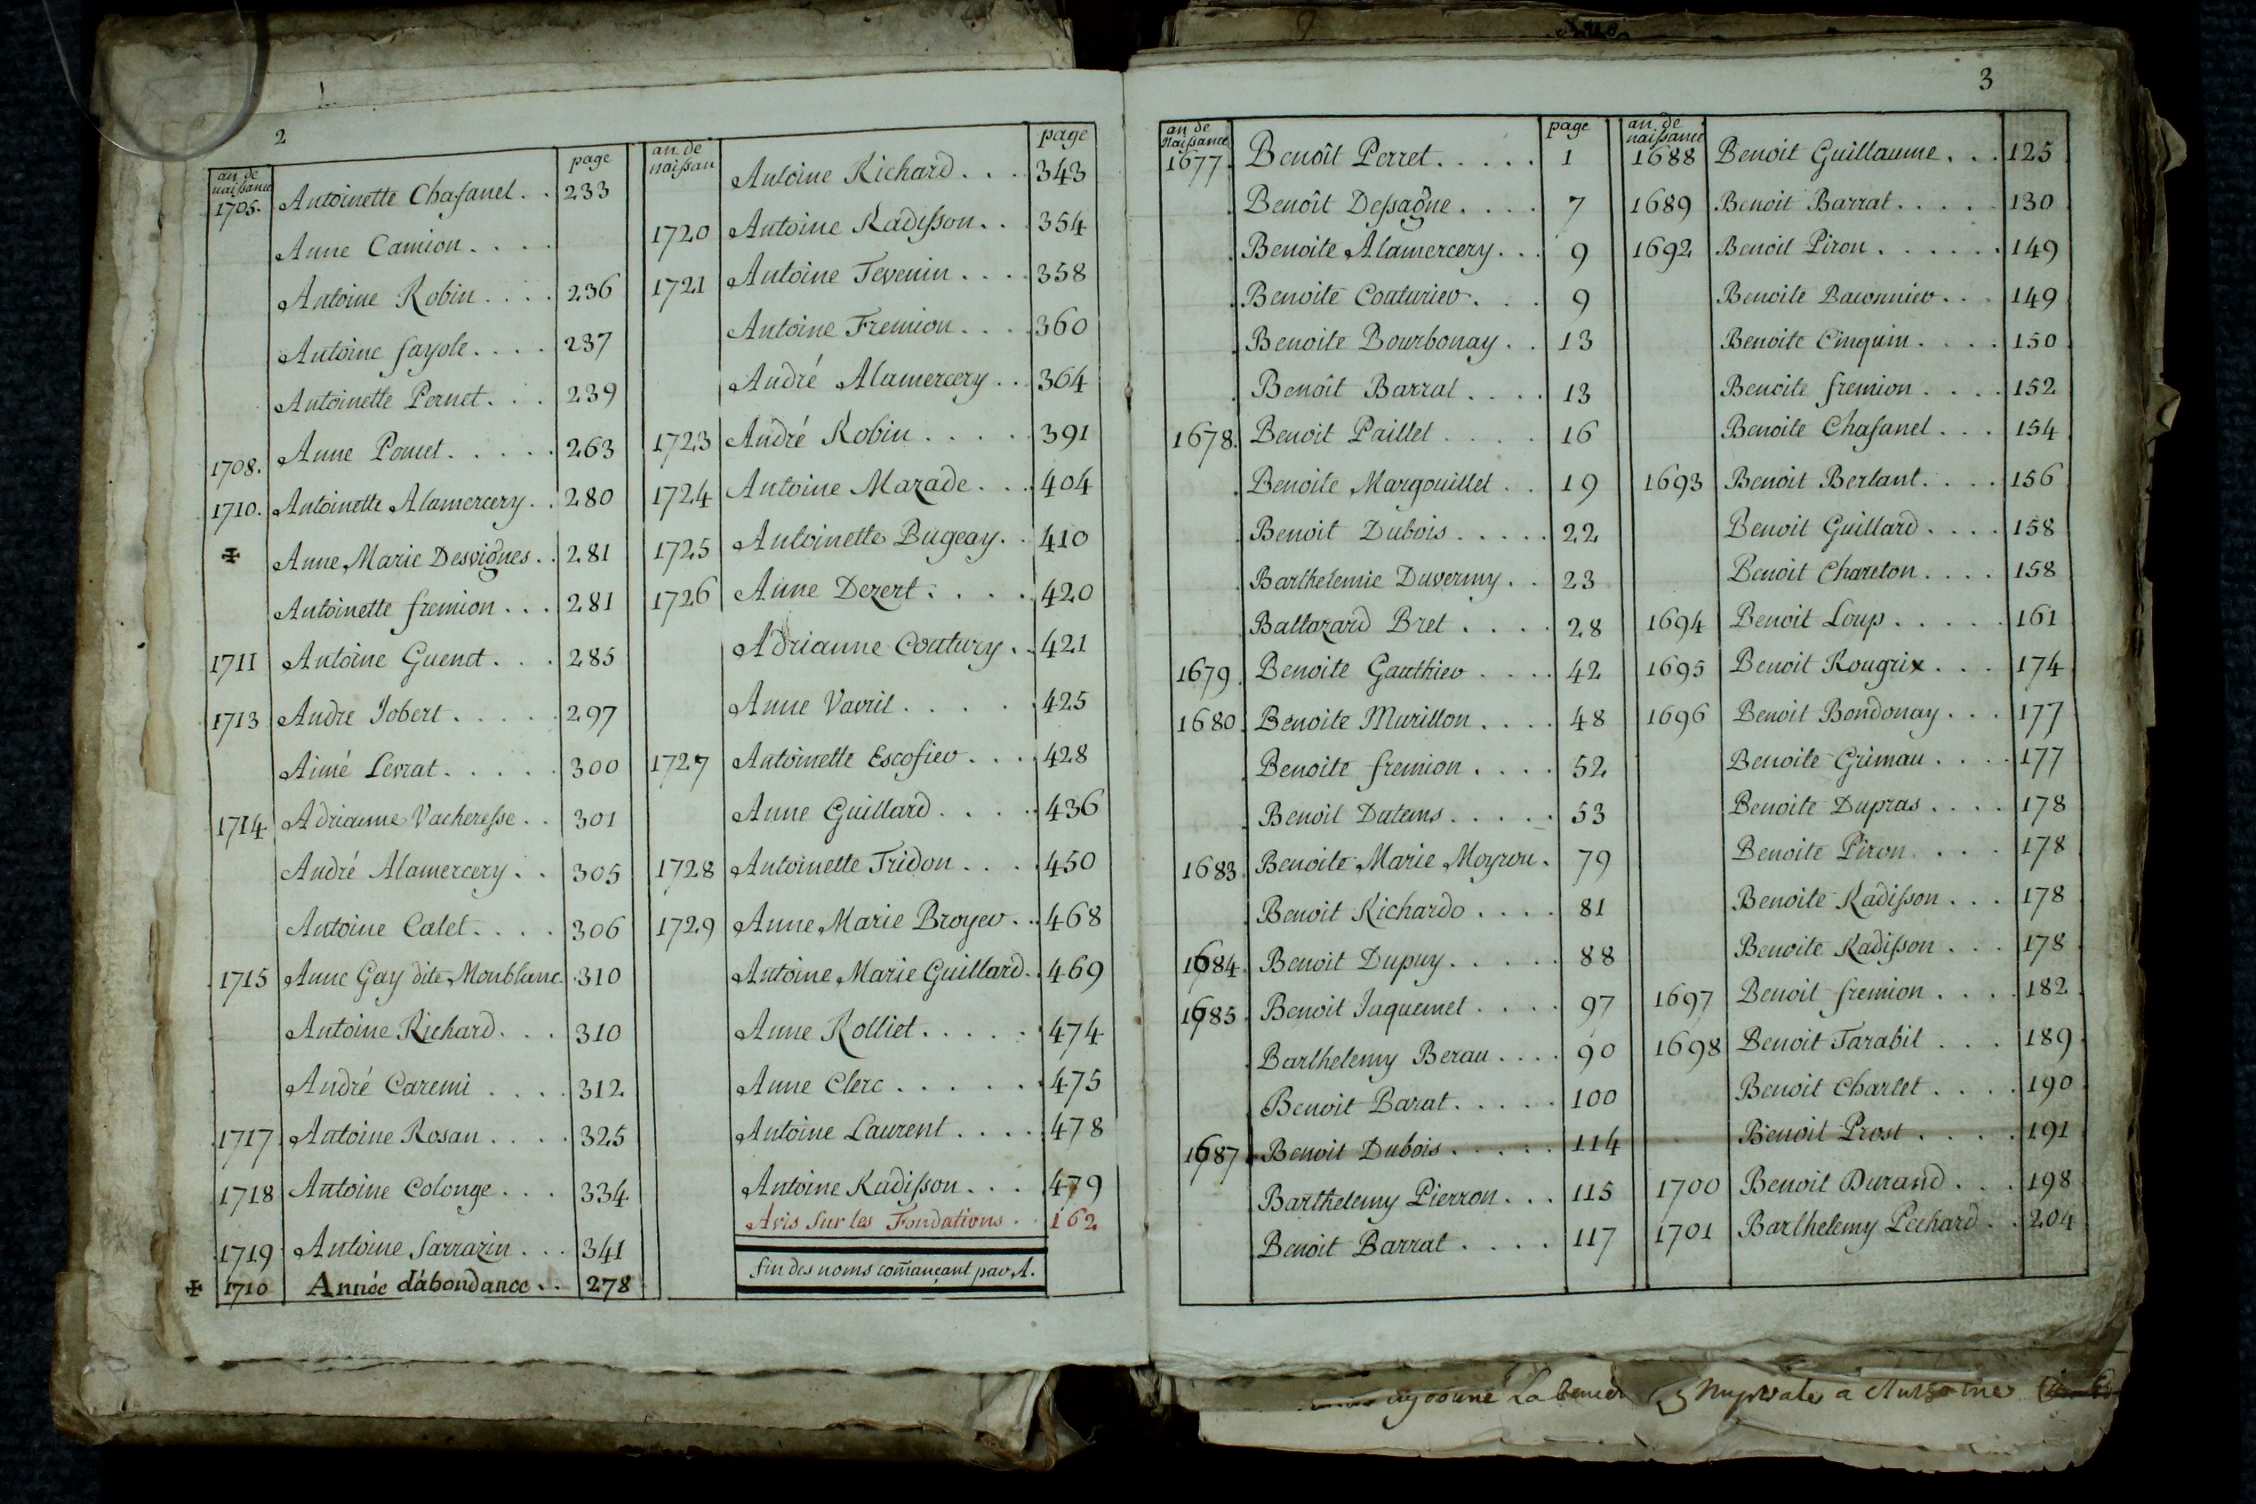 2
an de naissance page
1705. Antoinette Chasanel . . 233
Anne Camion . . . .
Antoine Robin . . . . 236
Antoine fayole . . . . 237
Antoinette Pernet . . . 239
1708. Anne Poncet . . . . . 263
1710. Antoinette Alamercery . . 280
✠ Anne Marie Desvignes . . 281
Antoinette fremion . . . 281
1711 Antoine Guenet . . . 285
1713 Andre Jobert . . . . . 297
Aimé Levrat . . . . . 300
1714 Adrianne Vacheresse . . 301
André Alamercery . . 305
Antoine Catet . . . . 306
1715 Anne Gay dite Monblanc . 310
Antoine Richard . . . 310
André Caremi . . . . 312
1717 Antoine Rosan . . . . 325
1718 Antoine Colonge . . . 334
1719 Antoine Sarrazin . . . 341
✠ 1710 Année d'abondance . . 278
an de naissan page
Antoine Richard . . . 343
1720 Antoine Radisson . . . 354
1721 Antoine Tevenin . . . . 358
Antoine Fremion . . . . 360
André Alamercery . . 364
1723 André Robin . . . . . 391
1724 Antoine Mazade . . . 404
1725 Antoinette Bugeay . . 410
1726 Anne Dezert . . . . . 420
Adrianne Coutury . . 421
Anne Vavril . . . . . 425
1727 Antoinette Escofier . . . 428
Anne Guillard . . . . . 436
1728 Antoinette Tridon . . . . 450
1729 Anne Marie Broyer . . 468
Antoine Marie Guillard . . 469
Anne Rolliet . . . . . 474
Anne Clerc . . . . . . 475
Antoine Laurent . . . . 478
Antoine Radisson . . . 479
Avis sur les Fondations . . 162
fin des noms comançant par A.
3
an de Naissance page
1677. Benoît Perret . . . . . 1
Benoît Dessagne . . . . 7
Benoite Alamercery . . . 9
Benoite Couturier . . . 9
Benoite Bourbonay . . 13
Benoît Barrat . . . . 13
1678. Benoit Paillet . . . . 16
Benoite Margouillet . . 19
Benoit Dubois . . . . . 22
Barthelemie Duverny . . 23
Baltazard Bret . . . . 28
1679. Benoite Gauthier . . . . 42
1680. Benoite Murillon . . . . 48
Benoite fremion . . . . 52
Benoit Dutems . . . . . 53
1683. Benoite Marie Moyrou . 79
Benoit Richard . . . . 81
1684. Benoit Dupuy . . . . . 88
1685. Benoit Jaquemet . . . . 97
Barthelemy Berau . . . . 90
Benoit Barat . . . . . 100
1687. Benoit Dubois . . . . . 114
Barthelemy Pierron . . . 115
Benoit Barrat . . . . 117
an de naissance
1688 Benoit Guillaume . . . 125
1689 Benoit Barrat . . . . . 130
1692 Benoit Piron . . . . . . 149
Benoite Baconnier . . . 149
Benoite Cinquin . . . . 150
Benoite fremion . . . . 152
Benoite Chasanel . . . 154
1693 Benoit Berlant . . . . 156
Benoit Guillard . . . . 158
Benoit Chareton . . . . 158
1694 Benoit Loup . . . . . 161
1695 Benoit Rougrix . . . 174
1696 Benoit Bondonay . . . 177
Benoite Grimau . . . . 177
Benoite Dupras . . . . 178
Benoite Piron . . . . 178
Benoite Radisson . . . 178
Benoite Radisson . . . 178
1697 Benoit fremion . . . . 182
1698 Benoit Tarabit . . . 189
Benoit Charlet . . . . 190
Benoit Prost . . . . . 191
1700 Benoit Durand . . . 198
1701 Barthelemy Pechard . . 204